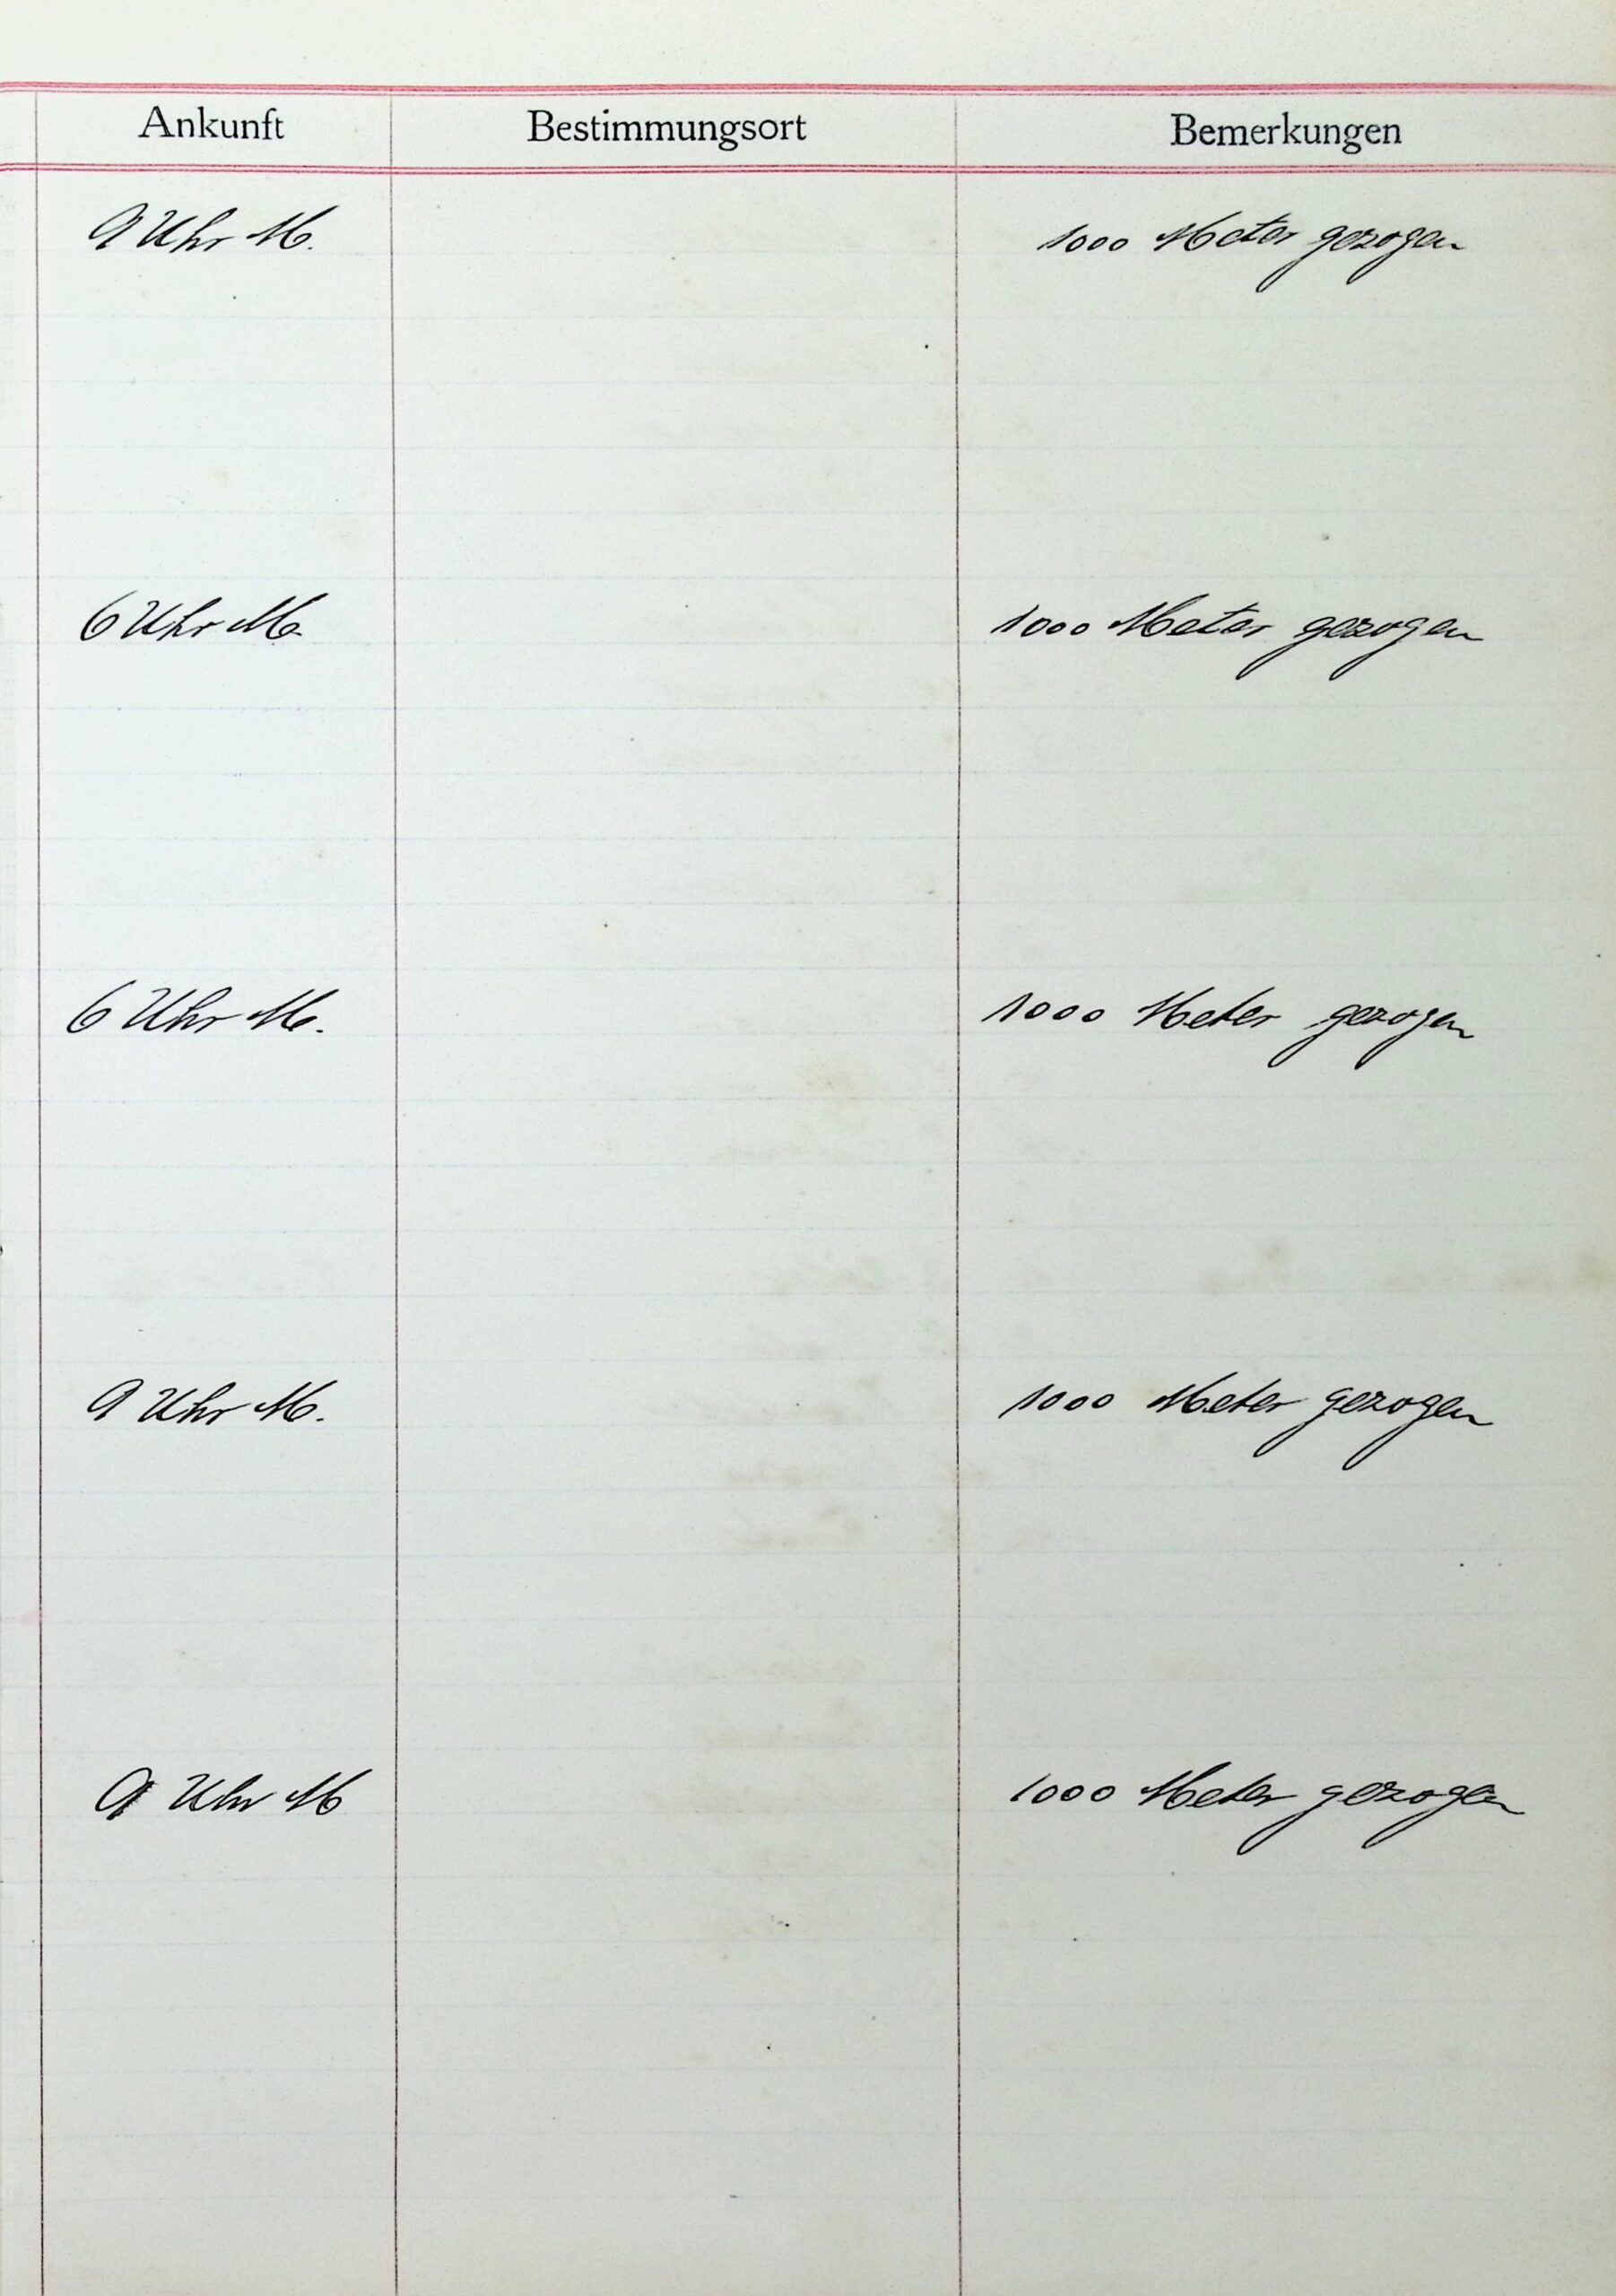 Ankunft Bestimmungsort Bemerkungen
9 Uhr M. 1000 Meter gezogen
6 Uhr M. 1000 Meter gezogen
6 Uhr M. 1000 Meter gezogen
9 Uhr M. 1000 Meter gezogen
9 Uhr M 1000 Meter gezogen